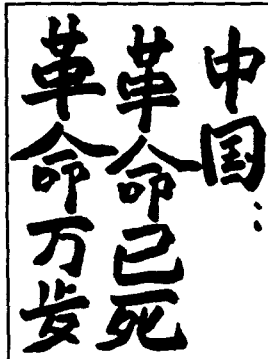 中国…
革命已死
革命万岁